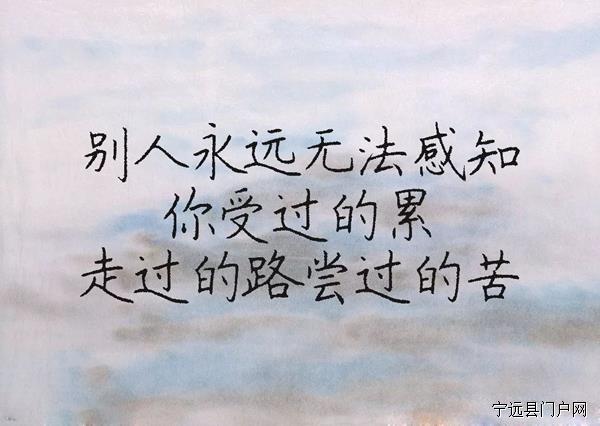 别人永远无法感知
你受过的累
走过的路尝过的苦
宁远县门户网